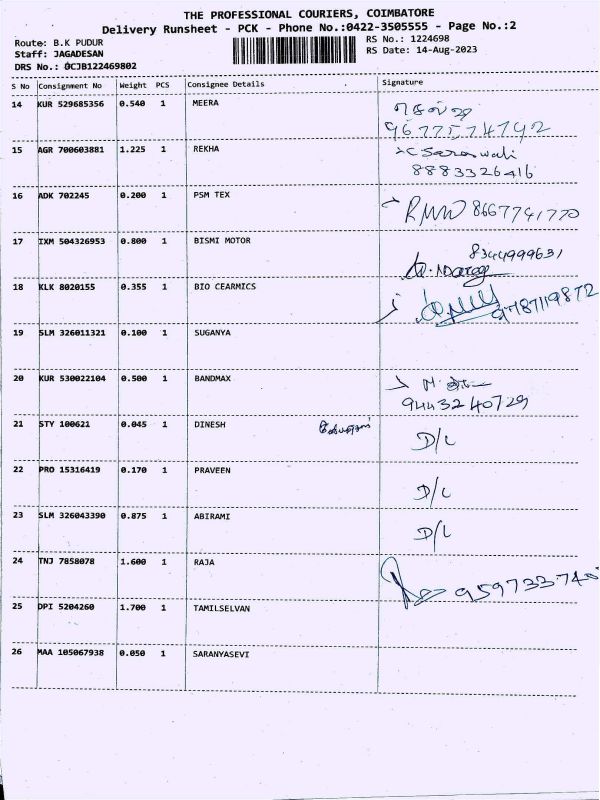 THE PROFESSIONAL COURIERS, COIMBATORE
Delivery Runsheet - PCK - Phone No.:0422-3505555 - Page No.:2
Route: B.K PUDUR
RS No.: 1224698
Staff: JAGADESAN
RS Date: 14-Aug-2023
DRS No.: OCJB122469802
S No Consignment No Weight PCS Consignee Details Signature
14 KUR 529685356 0.540 1 MEERA
15 AGR 700603881 1.225 1 REKHA C Saraswati
8883326416
16 ADK 702245 0.200 1 PSM TEX 8667741770
17 IXM 504326953 0.800 1 BISMI MOTOR 8344999631
18 KLK 8020155 0.355 1 BIO CEARMICS 9787119872
19 SLM 326011321 0.100 1 SUGANYA
20 KUR 530022104 0.500 1 BANDMAX
9443240729
21 STY 100621 0.045 1 DINESH D/L
22 PRO 15316419 0.170 1 PRAVEEN D/L
23 SLM 326043390 0.875 1 ABIRAMI D/L
24 TNJ 7858078 1.600 1 RAJA
25 DPI 5204260 1.700 1 TAMILSELVAN
26 MAA 105067938 0.050 1 SARANYASEVI